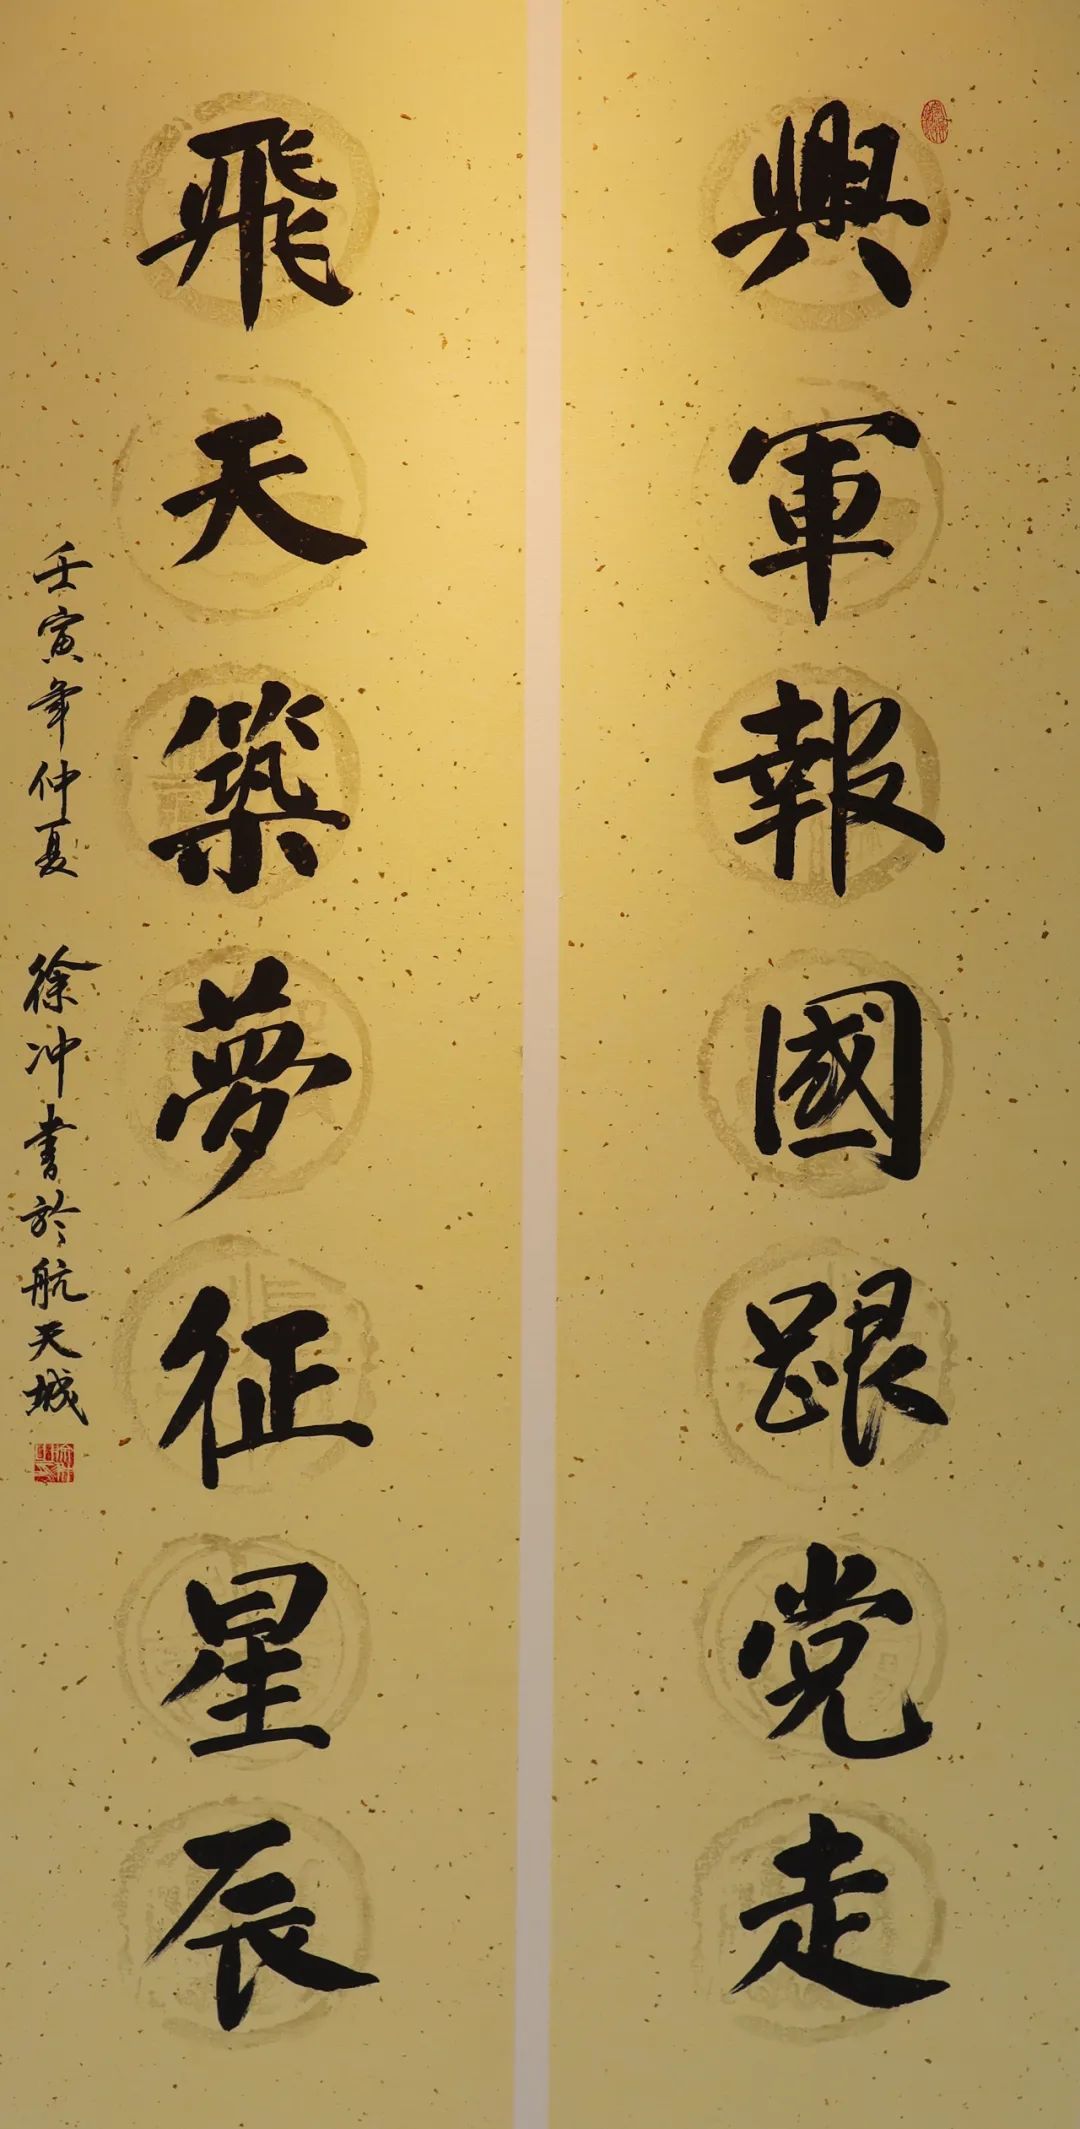 興軍報國跟党走
飛天築夢征星辰
壬寅年仲夏 徐冲書於航天城